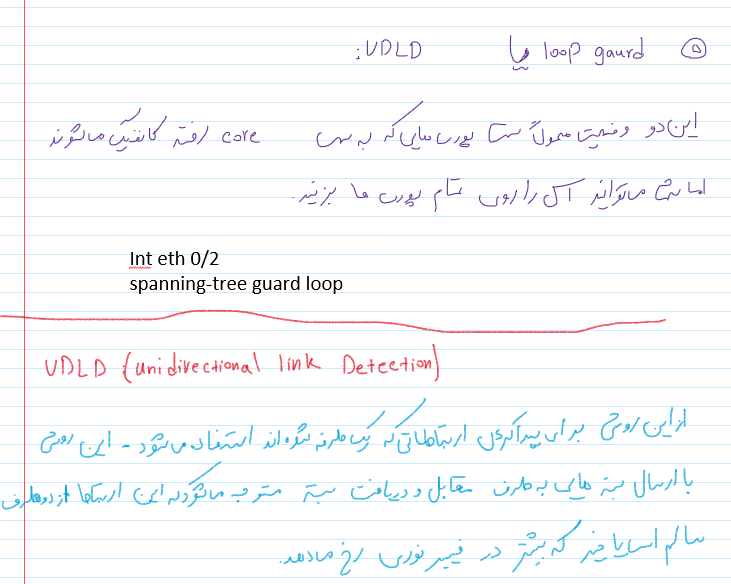 ⑤ loop gaurd یا UDLD:
این دو وضعیت معمولاً سمت پورت هایی که به سمت core رفته کانفیگ میشوند
اما شما میتوانید آن را روی تمام پورت ها بزنید.
Int eth 0/2
spanning-tree guard loop
UDLD (unidirectional link Detection)
از این روش برای پیدا کردن ارتباطاتی که یک طرفه شده اند استفاده میشود - این روش
با ارسال بسته هایی به طرف مقابل و دریافت بسته متوجه میشود که این ارتباط از دو طرف
سالم است یا خیر که بیشتر در فیبر نوری رخ میدهد.